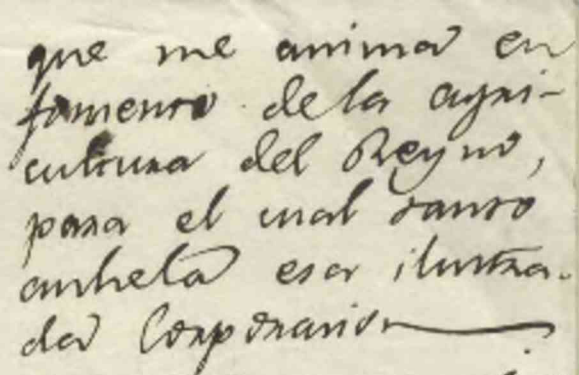 que me anima en
fomento de la agri-
cultura del Reyno,
para el cual tanto
anhela esa ilustra-
da Corporacion